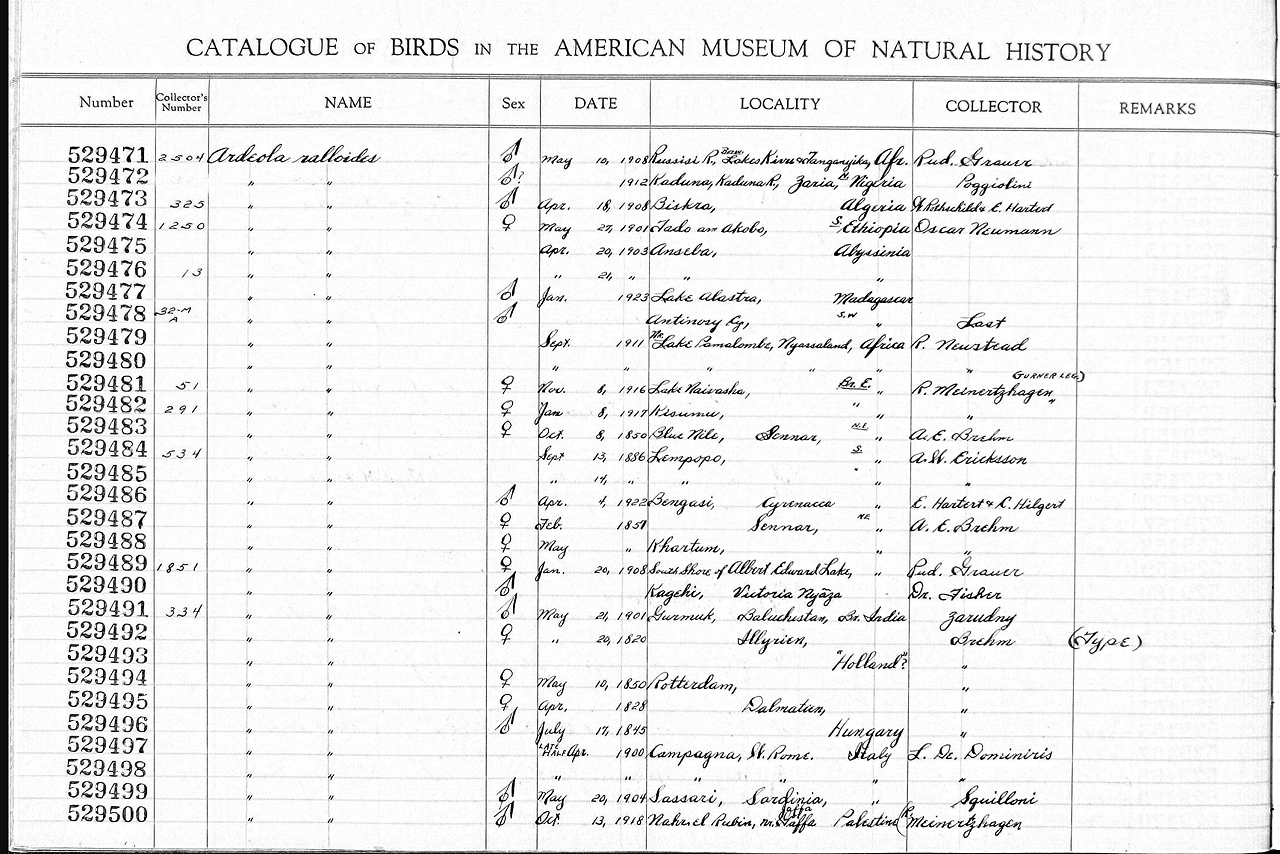 CATALOGUE OF BIRDS IN THE AMERICAN MUSEUM OF NATURAL HISTORY
Number Collector's Number NAME Sex DATE LOCALITY COLLECTOR REMARKS
529471 2504 Ardeola ralloides ♂ May 10, 1908 Russisi R., Betw. Lakes Kivu & Tanganyika, Afr. Rud. Grauer
529472 " " ♂? 1912 Kaduna, Kaduna R., Zaria, N. Nigeria Poggiolini
529473 325 " " ♂ Apr. 18, 1908 Biskra, Algeria W. Rothschild & E. Hartert
529474 1250 " " ♀ May 27, 1901 Tado am Akobo, S. Ethiopia Oscar Neumann
529475 " " Apr. 20, 1903 Anseba, Abyssinia
529476 13 " " " 21, " " "
529477 " " ♂ Jan. 1923 Lake Alaotra, Madagascar
529478 32-M A " " ♂ Antinosy Cy, S.W " Last
529479 " " Sept. 1911 Nr. Lake Pamalombe, Nyassaland, Africa R. Newstead
529480 " " " " " " " " "
529481 51 " " ♀ Nov. 8, 1916 Lake Naivasha, Br. E. " R. Meinertzhagen (TURNER LEG.)
529482 291 " " ♀ Jan 8, 1917 Kisumu, " " " "
529483 " " ♀ Oct. 8, 1850 Blue Nile, Sennar, N.E. " A. E. Brehm
529484 534 " " Sept 13, 1886 Lempopo, S. " A. W. Ericksson
529485 " " " 14, " " " " "
529486 " " ♂ Apr. 4, 1922 Bengasi, Cyrenacca " E. Hartert & C. Hilgert
529487 " " ♀ Feb. 1851 Sennar, N.E. " A. E. Brehm
529488 " " ♀ May " Khartum, " "
529489 1851 " " ♀ Jan. 20, 1908 South Shore of Albert Edward Lake, " Rud. Grauer
529490 " " ♂ Kagehi, Victoria Nyāza Dr. Fisher
529491 334 " " ♂ May 21, 1901 Gurmuk, Baluchistan, Br. India Zarudny
529492 " " ♀ " 20, 1820 Illyrien, Brehm (Type)
529493 " " "Holland"? "
529494 " " ♀ May 10, 1850 Rotterdam, "
529495 " " ♀ Apr. 1828 Dalmatien, "
529496 " " ♂ July 17, 1845 Hungary "
529497 " " "LATE HALF Apr. 1900 Campagna, W. Rome. Italy L. De. Dominiris
529498 " " " " " " " "
529499 " " ♂ May 20, 1904 Sassari, Sardinia, " Squilloni
529500 " " ♂ Oct 13, 1918 Nahr el Rubin, nr. Jaffa Palestine (R. Meinertzhagen